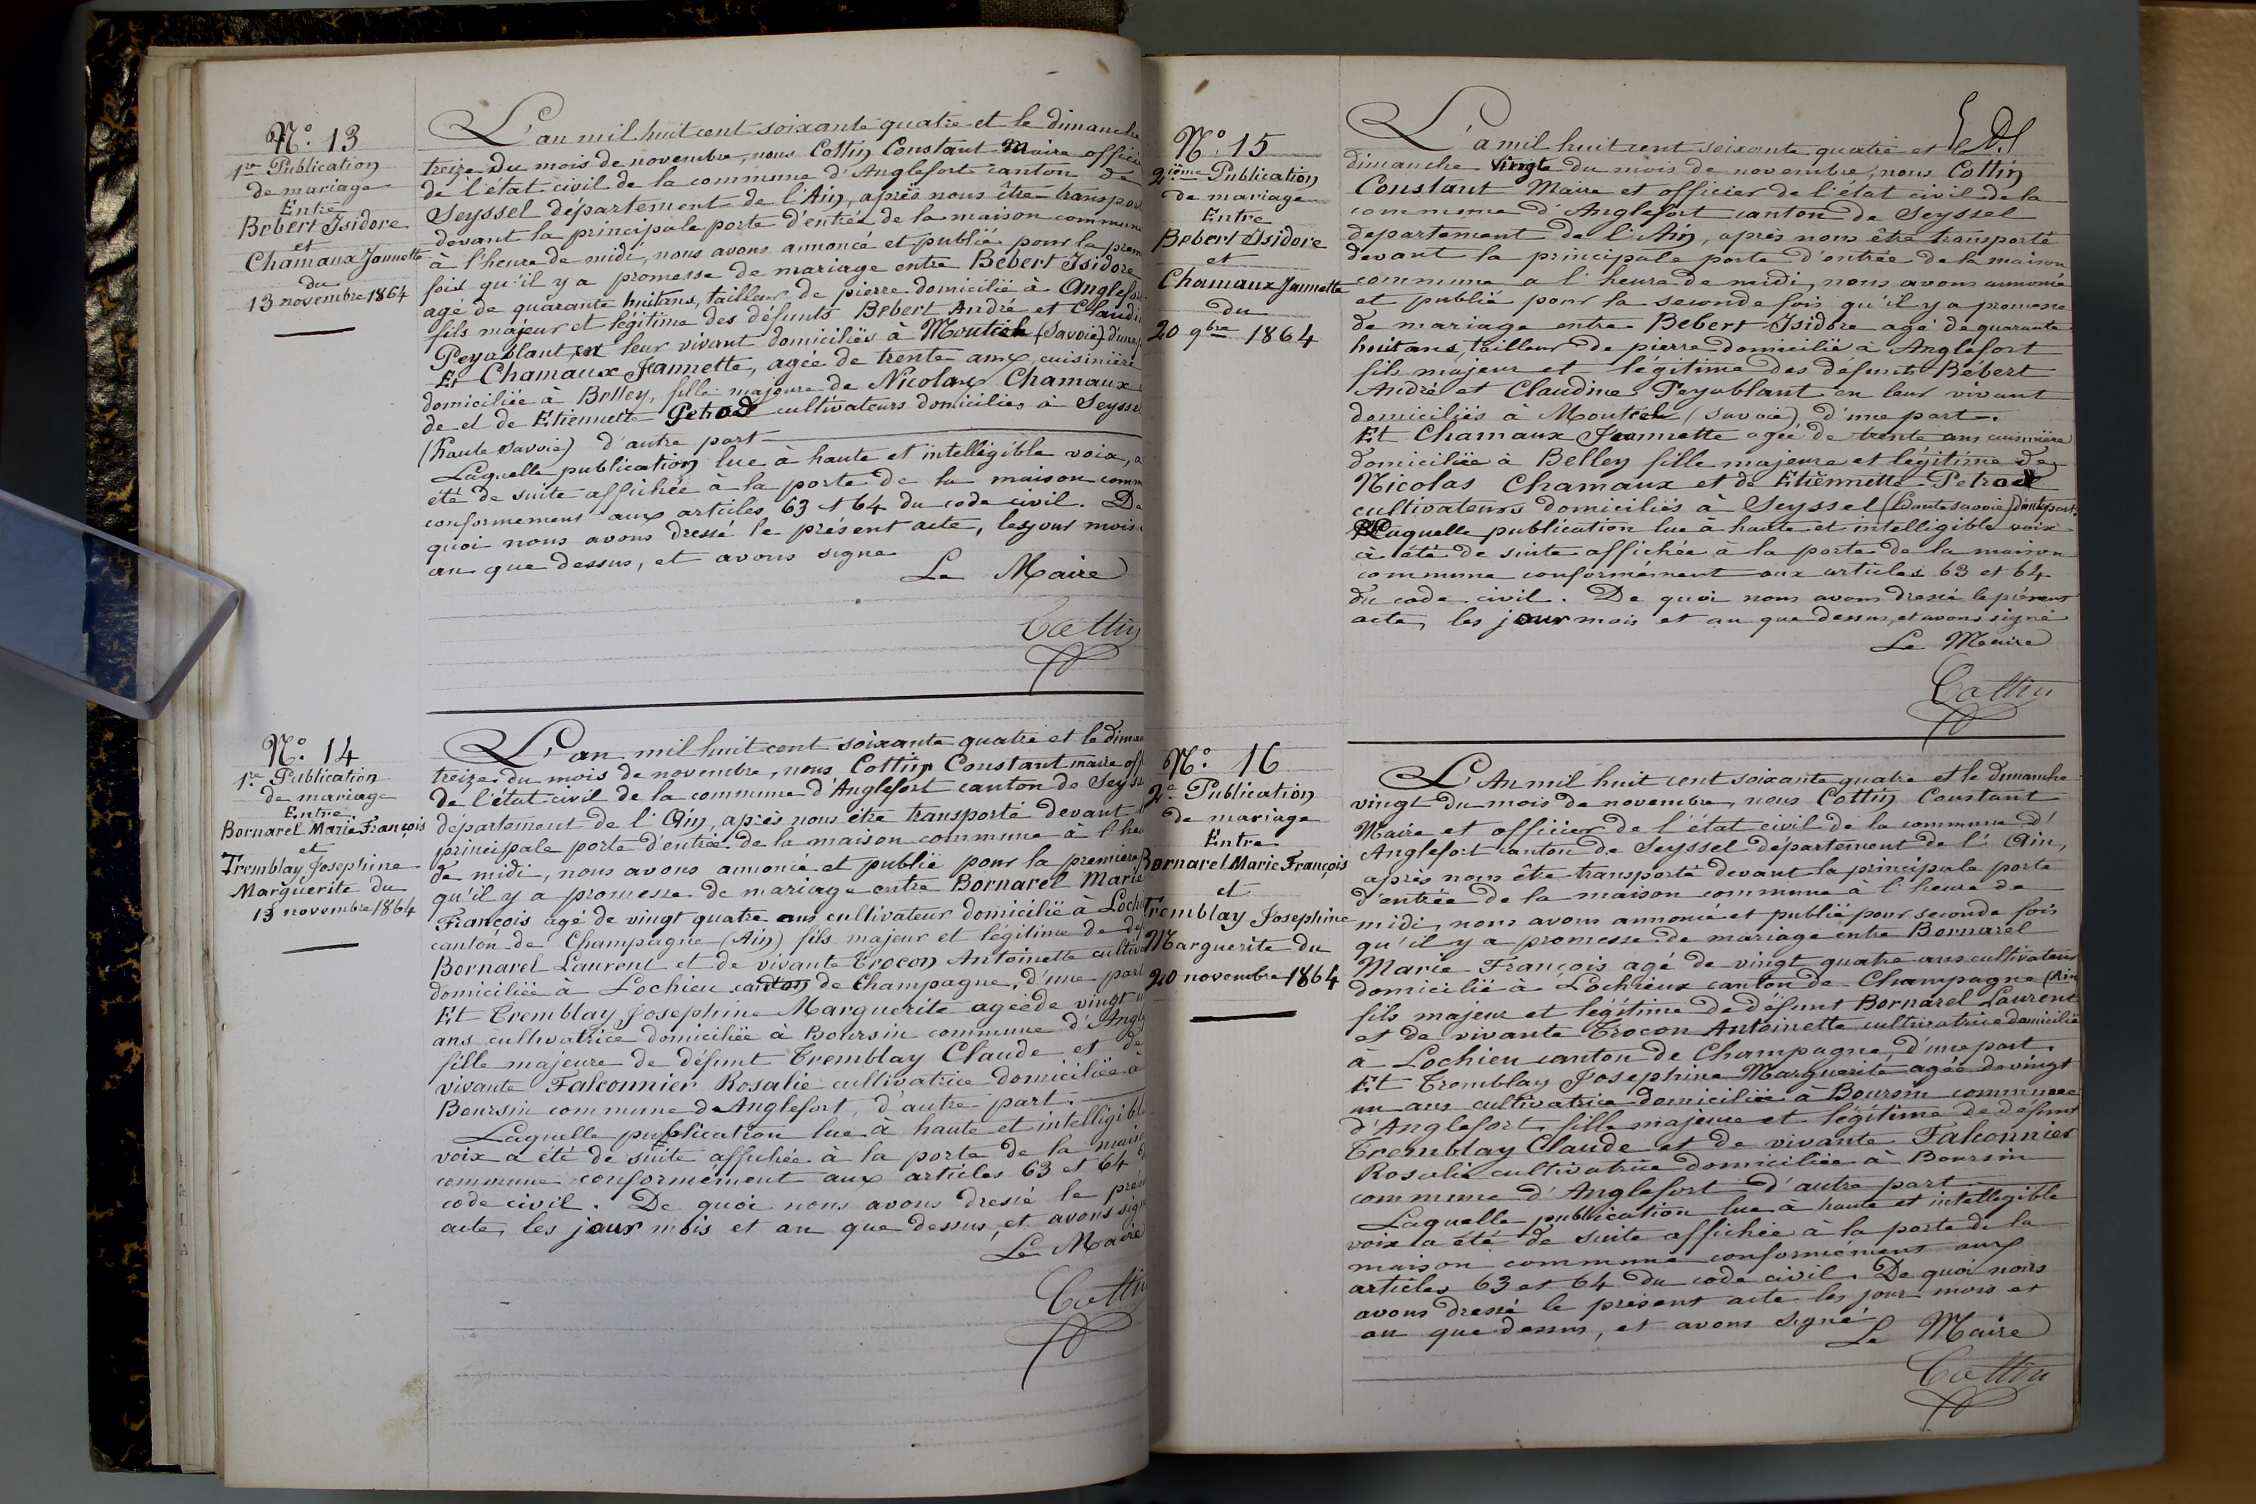 N.º 13
1re Publication
de mariage
Entre
Bebert Isidore
et
Chamaux Jannette
du
13 novembre 1864
L'an mil huit cent soixante quatre et le dimanche
treize du mois de novembre, nous Cottin Constant Maire offici
de l'état civil de la commune d'Anglefort canton de
Seyssel département de l'Ain, après nous être transpor
devant la principale porte d'entrée de la maison commune
à l'heure de midi, nous avons annoncé et publié pour la prem
fois qu'il y a promesse de mariage entre Bébert Isidore
agé de quarante huit ans, tailleur de pierre domicilié à Anglefor
fils majeur et légitime des défunts Bebert André et Claudi
Peyoblant en leur vivant domiciliés à (Savoie) d'une p
Et Chamaux Jeannette, agée de trente ans, cuisinière
domiciliée à Belley, fille majeure de Nicolas Chamaux
de et de Etiennette cultivateurs domiciliés à Seysse
(haute savoie) d'autre part
Laquelle publication lue à haute et intelligible voix, a
été de suite affichée à la porte de la maison comm
conformement aux articles 63 et 64 du code civil. De
quoi nous avons dressé le présent acte, les jour mois
an que dessus, et avons signé
Le Maire
Cottin
N.º 14
1re Publication
de mariage
Entre
Bornarel Marie François
et
Tremblay Josephine
Marguerite du
13 novembre 1864
L'an mil huit cent soixante quatre et le diman
treize du mois de novembre, nous Cottin Constant maire off
de l'état civil de la commune d'Anglefort canton de Seyss
département de l'Ain, après nous être transporté devant
principale porte d'entrée de la maison commune à l'heu
de midi, nous avons annoncé et publié pour la première
qu'il y a promesse de mariage entre Bornarel Marie
François agé de vingt quatre ans cultivateur domicilié à Lochi
canton de Champagne (Ain) fils majeur et légitime de dé
Bornarel Laurent et de vivante Trocon Antoinette cultiva
domiciliée à Lochieu canton de Champagne, d'une part
Et Tremblay Josephine Marguerite agée de vingt u
ans cultivatrice domiciliée à Boursin commune d'Angle
fille majeure de défunt Tremblay Claude et de
vivante Falconnier Rosalie cultivatrice domiciliée à
Boursin commune de Anglefort, d'autre part.
Laquelle publication lue à haute et intelligibl
voix a été de suite affichée à la porte de la maiso
commune conformément aux articles 63 et 64
code civil. De quoi nous avons dressé le prése
acte, les jour mois et an que dessus, et avons sign
Le Maire
Cottin
N.º 15
2ième Publication
de mariage
Entre
Bebert Isidore
et
Chamaux Jannette
du
20 9bre 1864
L'a mil huit cent soixante quatre et le
dimanche vingt du mois de novembre, nous Cottin
Constant Maire et officier de l'état civil de la
commune d'Anglefort canton de Seyssel
departement de l'Ain, après nous être transporté
devant la principale porte d'entrée de la maison
commune a l'heure de midi, nous avons annoncé
et publié pour la seconde fois qu'il y a promesse
de mariage entre Bebert Isidore agé de quarante
huit ans, tailleur de pierre domicilié à Anglefort
fils majeur et légitime des défunts Bébert
André et Claudine Peyoblant en leur vivant
domiciliés à (savoie) d'une part.
Et Chamaux Jeannette agée de trente ans cuisinière
domiciliée à Belley fille majeure et légitime de
Nicolas Chamaux et de Etiennette
cultivateurs domiciliés à Seyssel (haute savoie) d'autre part
Laquelle publication lue à haute et intelligible voix
à été de suite affichée à la porte de la maison
commune conformément aux articles 63 et 64
du code civil. De quoi nous avons dressé le présent
acte, les jour mois et an que dessus, et avons signé
Le Maire
Cottin
N.º 16
2e Publication
de mariage
Entre
Bornarel Marie François
et
Tremblay Josephine
Marguerite du
20 novembre 1864
L'An mil huit cent soixante quatre et le dimanche
vingt du mois de novembre, nous Cottin Constant
Maire et officier de l'état civil de la commune d'
Anglefort canton de Seyssel département de l'Ain,
après nous être transporté devant la principale porte
d'entrée de la maison commune à l'heure de
midi, nous avons annoncé et publié pour seconde fois
qu'il y a promesse de mariage entre Bornarel
Marie François agé de vingt quatre ans cultivateur
domicilié à Lochieux canton de Champagne (Ain
fils majeur et légitime de défunt Bornarel Laurent
et de vivante Trocon Antoinette cultivatrice domicilié
à Lochieu canton de Champagne, d'une part.
Et Tremblay Josephine Marguerite agée de vingt
un ans cultivatrice domiciliée à Boursin commune
d'Anglefort, fille majeure et légitime de défunt
Tremblay Claude et de vivante Falconnier
Rosalie cultivatrice domiciliée à Boursin
commune d'Anglefort d'autre part
Laquelle publication lue à haute et intelligible
voix a été de suite affichée à la porte de la
maison commune conformément aux
articles 63 et 64 du code civil. De quoi nous
avons dressé le présent acte les jour mois et
an que dessus, et avons signé
Le Maire
Cottin